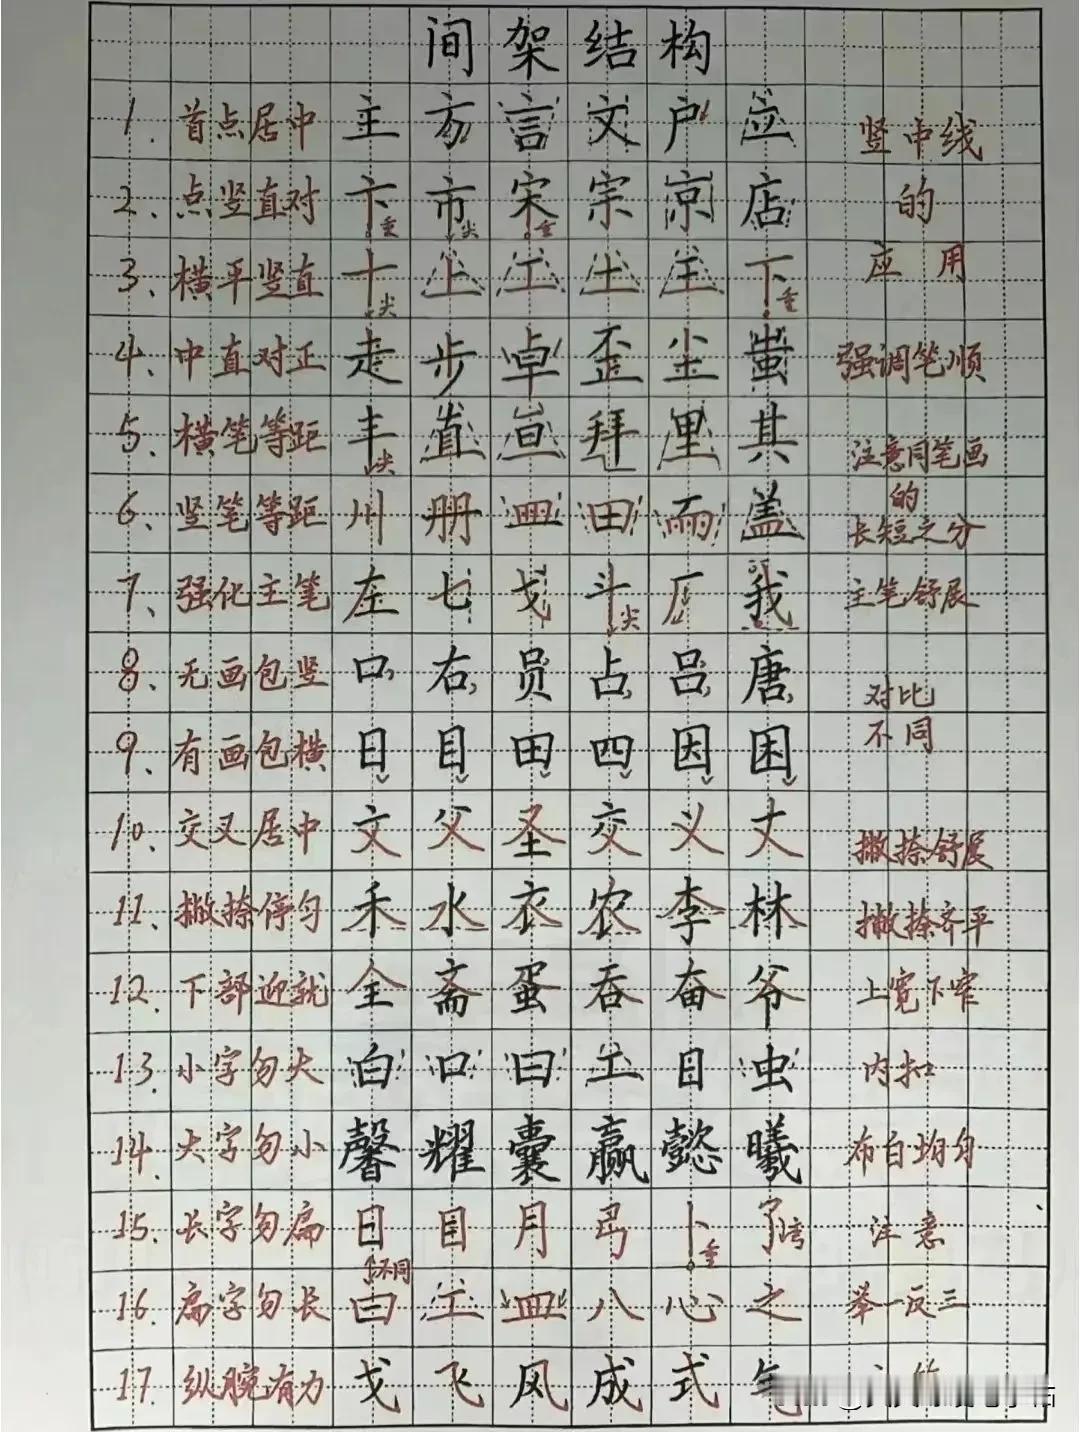 间架结构
1. 首点居中 主方言文户应 竖中线
2. 点竖直对 卞市宋宗京店 的
重 尖 重
3. 横平竖直 十上工土王下 应用
尖 重
4. 中直对正 走步卓歪尘蚩 强调笔顺
5. 横笔等距 丰直亘拜里其 注意同笔画
尖 的
6. 竖笔等距 川册皿田而盖 长短之分
7. 强化主笔 左七戈斗厂我 主笔舒展
尖
8. 无画包竖 口右员占吕唐 对比
9. 有画包横 日目田四因困 不同
10. 交叉居中 文父圣交义丈 撇捺舒展
11. 撇捺停匀 禾水衣农李林 撇捺齐平
12. 下部迎就 全斋蛋吞奋爷 上宽下窄
13. 小字勿大 白口曰工目虫 内扣
14. 大字勿小 馨耀囊赢懿曦 布白均匀
15. 长字勿扁 日目月弓卜了 注意
不同 重 弯
16. 扁字勿长 曰工皿八心之 举一反三
17. 纵腕有力 戈飞风成式气